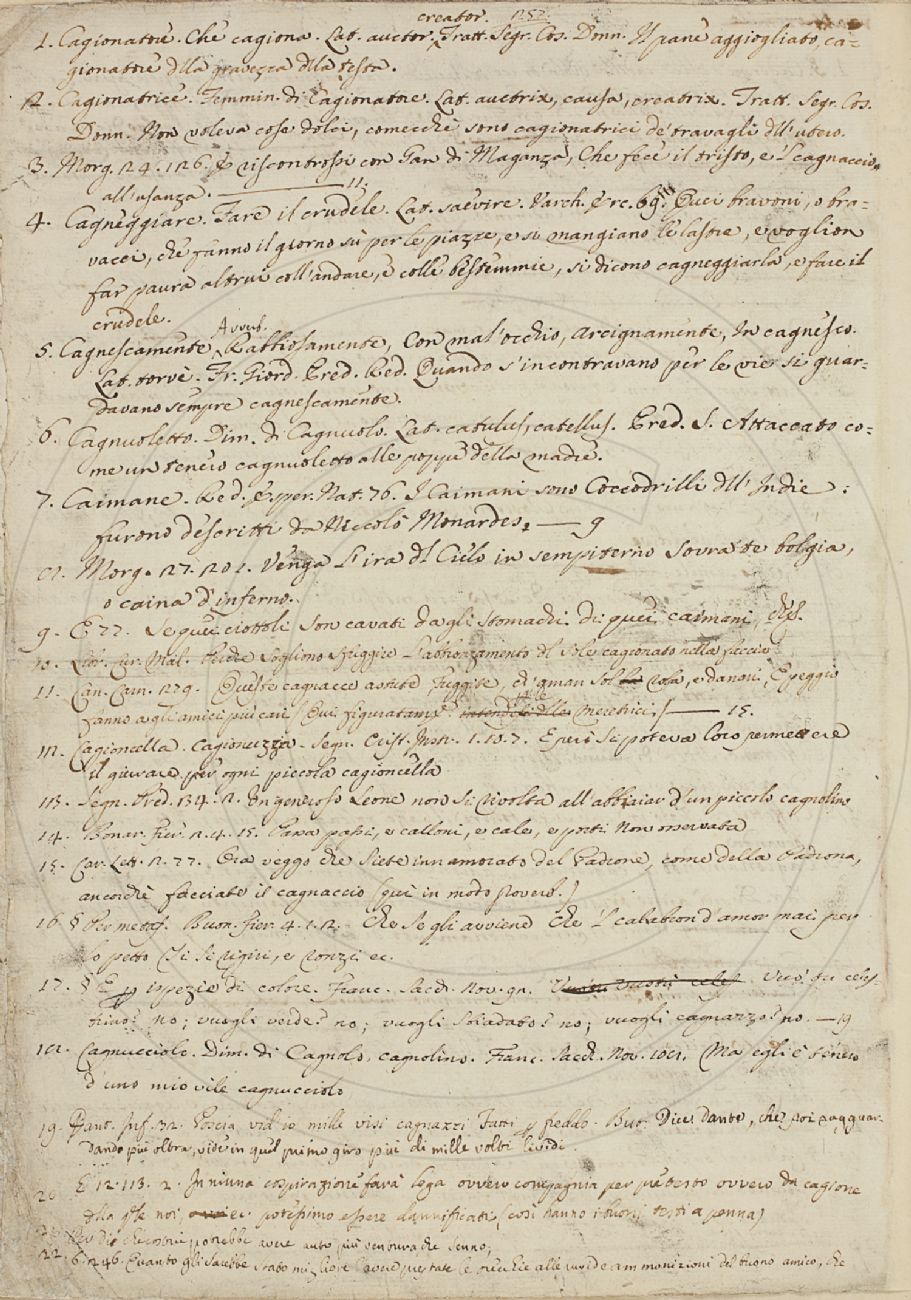 creator. 1252.
1. Cagionatore. Che cagiona. Lat. auctor, Tratt. Segr. Cos. Donn. Il pane aggiogliato, ca=
gionatore dlla gravezza dlla testa.
2. Cagionatrice. Femmin. di Cagionatore. Lat. auctrix, causa, creatrix. Tratt. Segr. Cos.
Donn. Non voleva cose dolci, comecchè sono cagionatrici de' travagli dll' utero.
3. Morg. 24. 126. E riscontrossi con Gan di Maganza, Che fece il tristo, e 'l cagnaccio
all'usanza. — 11.
4. Cagneggiare. Fare il crudele. Lat. saevire. Varch. Erc. 69. Quei bravoni, o bra=
vacci, che fanno il giorno sù per le piazze, e si mangiano le lastre, e voglion
far paura altrui coll'andare, e colle bestemmie, si dicono cagneggiarla, e fare il
crudele.
Avverb.
5. Cagnescamente, Rabbiosamente, Con mal'occhio, Arcignamente, In cagnesco.
Lat. torvè. Fr. Giord. Pred. Red. Quando s'incontravano per le vie si guar=
davano sempre cagnescamente.
6. Cagnuoletto. Dim. di Cagnuolo. Lat. catulus, catellus. Pred. S. Attaccato co=
me un tenero cagnuoletto alle poppe della madre.
7. Caimane. Red. Esper. Nat. 76. I Caimani sono Coccodrilli dll' Indie:
furono descritti da Niccolò Monardes. — 9
8. Morg. 27. 201. Venga l'ira dl Cielo in sempiterno Sovra te bolgia,
o caina d'inferno.
9. E 77. Se quei ciottoli son cavati dagli stomachi di quei caimani,
10. Libr. Cur. Mal. Redi Sogliono sfuggire l'abbronzamento dl Sole cagionato nella faccia
11. Can. Carn. 279. Queste cagnacce astute fuggite, ch'aman sol la roba, e danari, E peggio
fanno agli amici più cari (Qui figuratam. delle meretrici) — 15.
12. Cagioncella. Cagionuzza. Segn. Crist. Instr. 1. 10. 7. E però si poteva loro permettere
il giurare per ogni piccola cagioncella
13. Segn. Pred. 34. 2. Un generoso Leone non si rivolta all'abbaiar d'un piccolo cagnolino
14. Bonar. Fier. 2. 4. 15. Para passi, e calloni, e cale, e porti Non osservata
15. Car. Lett. 2. 77. Ora veggo che siete innamorato del Padrone, come della Padrona,
ancorchè facciate il cagnaccio (qui in modo proverb.)
16. § Per metaf. Buon. Fier. 4. 1. 2. Che se gli avviene Che 'l calabron d'amor mai per
lo petto Gli si rigiri, e ronzi ec.
17. § E p ispezie di colore. Franc. Sacch. Nov. 92. Vuoi tu celes
trino? no; vuogli verde? no; vuogli sbiadato? no; vuogli cagnazzo? no. — 19
18. Cagnucciolo. Dim. di Cagnolo, cagnolino. Franc. Sacch. Nov. 108. Ma egli è tenero
d'uno mio vile cagnucciolo
19. Dant. Inf. 32. Poscia vid'io mille visi cagnazzi Fatti p freddo. But. Dice Dante, che poi ragguar
dando più oltra, vide in quel primo giro più di mille volti lividi.
20. E 12. 113. 2. In niuna cospirazione farà lega ovvero compagnia per pretesto ovvero da cagione
dlla qle noi, ec. potessimo essere dannificati (così hanno i buoni testi a penna)
potrebbe avere auto più ventura che senno;
22. 6. 246. Quanto gli sarebbe stato migliore avere prestate le orecchie alle ammonizioni del buono amico, che